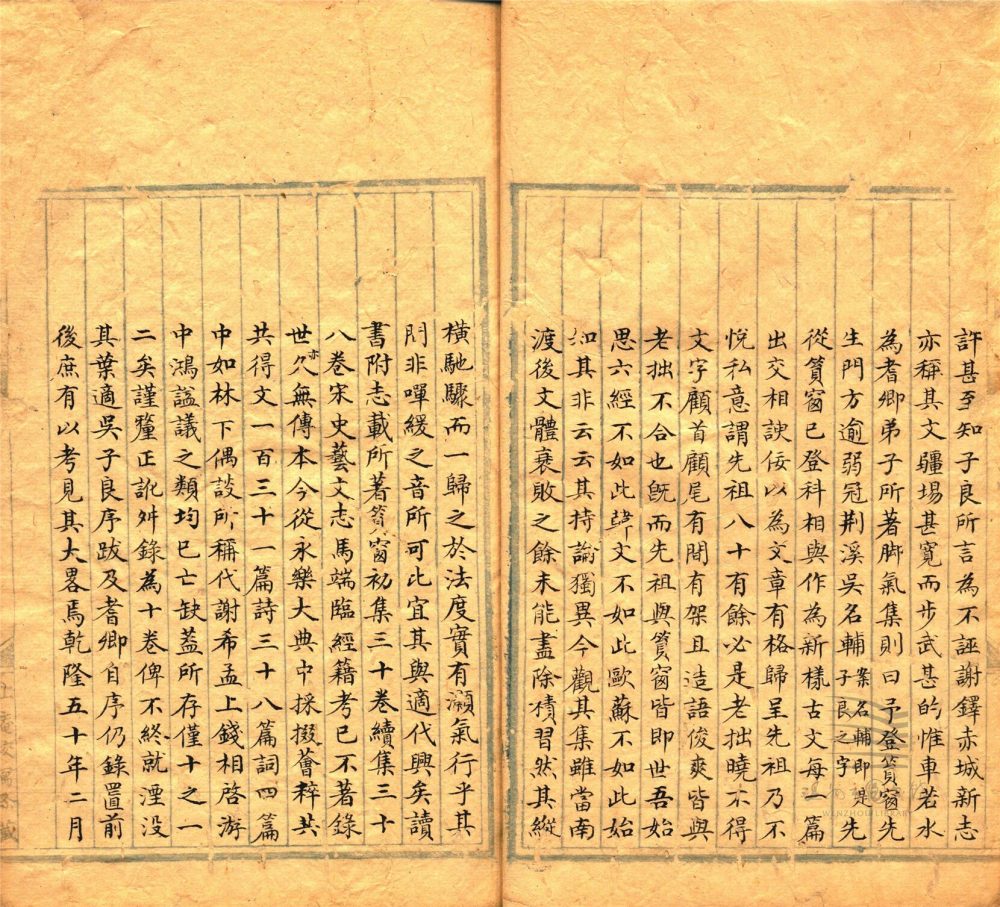 許甚至知子良所言為不誣謝鐸赤城新志
亦稱其文疆場甚寬而步武甚的惟車若水
為耆卿弟子所著脚氣集則曰予登篔窗先
生門方逾弱冠荆溪吳名輔案名輔即是子良之字先
從篔窗已登科相與作為新樣古文每一篇
出交相諛佞以為文章有格歸呈先祖乃不
悅私意謂先祖八十有餘必是老拙曉不得
文字顧首顧尾有間有架且造語俊爽皆與
老拙不合也旣而先祖與篔窗皆即世吾始
思六經不如此韓文不如此歐蘇不如此始
知其非云云其持論獨異今觀其集雖當南
渡後文體衰敗之餘未能盡除積習然其縱
橫馳驟而一歸之於法度實有灝氣行乎其
間非嘽緩之音所可比宜其與適代興矣讀
書附志載所著篔窗初集三十卷續集三十
八卷宋史藝文志馬端臨經籍考已不著錄
世亦久無傳本今從永樂大典中採掇薈稡共
共得文一百三十一篇詩三十八篇詞四篇
中如林下偶談所稱代謝希孟上錢相啓游
中鴻諡議之類均已亡缺蓋所存僅十之一
二矣謹釐正訛舛錄為十卷俾不終就湮没
其葉適吳子良序跋及耆卿自序仍錄置前
後庶有以考見其大畧焉乾隆五十年二月
WENZHOU LIBRARY